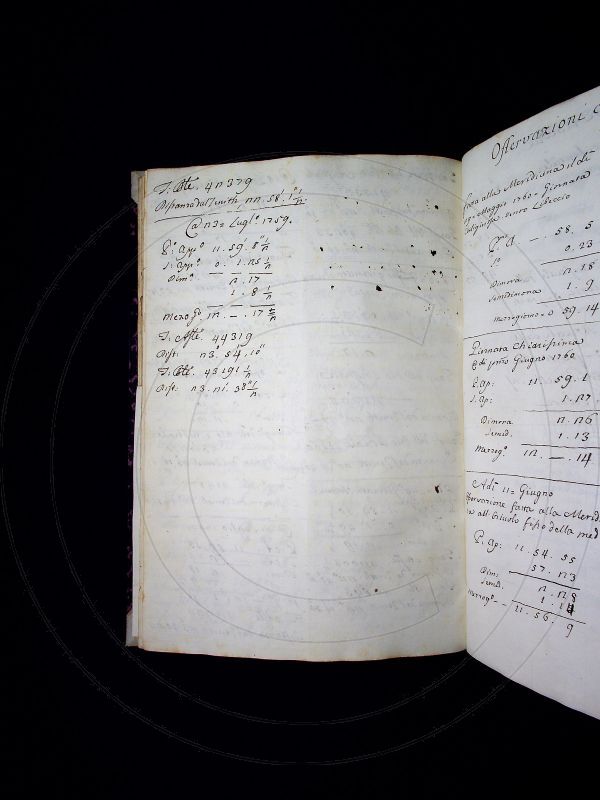 Distanza dal Zenith nn. 58' 1" 1/n
@ n3 = Lugl.º 1759.
P.º App.º 11. 59. 8" 1/n
S: App.º 0. 1. n5 1/n
Dim.ª n. 17
1. 8 1/n
Mezog.º 1n. – . 17
44319
Dist: n3º 54' 10"
43191 1/n
Dist: n3. n1'. 38" 1/n
Osservazioni
fatta alla Meridiana il dì
Maggio 1760 = Giornata
58. 5
0. 23
Dimora n. 18
Semidimora 1. 9
Mezzogiorno = 0 59. 14
Giornata Chiarissima
Giugno 1760
P. Ap: 11. 59. 1
S. Ap: 1. n7
Dimora n. n6
Semid. 1. 13
Mezzog.º 1n. – . 14
Adì 11 = Giugno
Osservazione fatta alla Merid
della med
P. Ap: 11. 54. 55
57. n3
Dim: n. n8
Semid. 1. 14
Mezzog.º – – 11. 56. 9